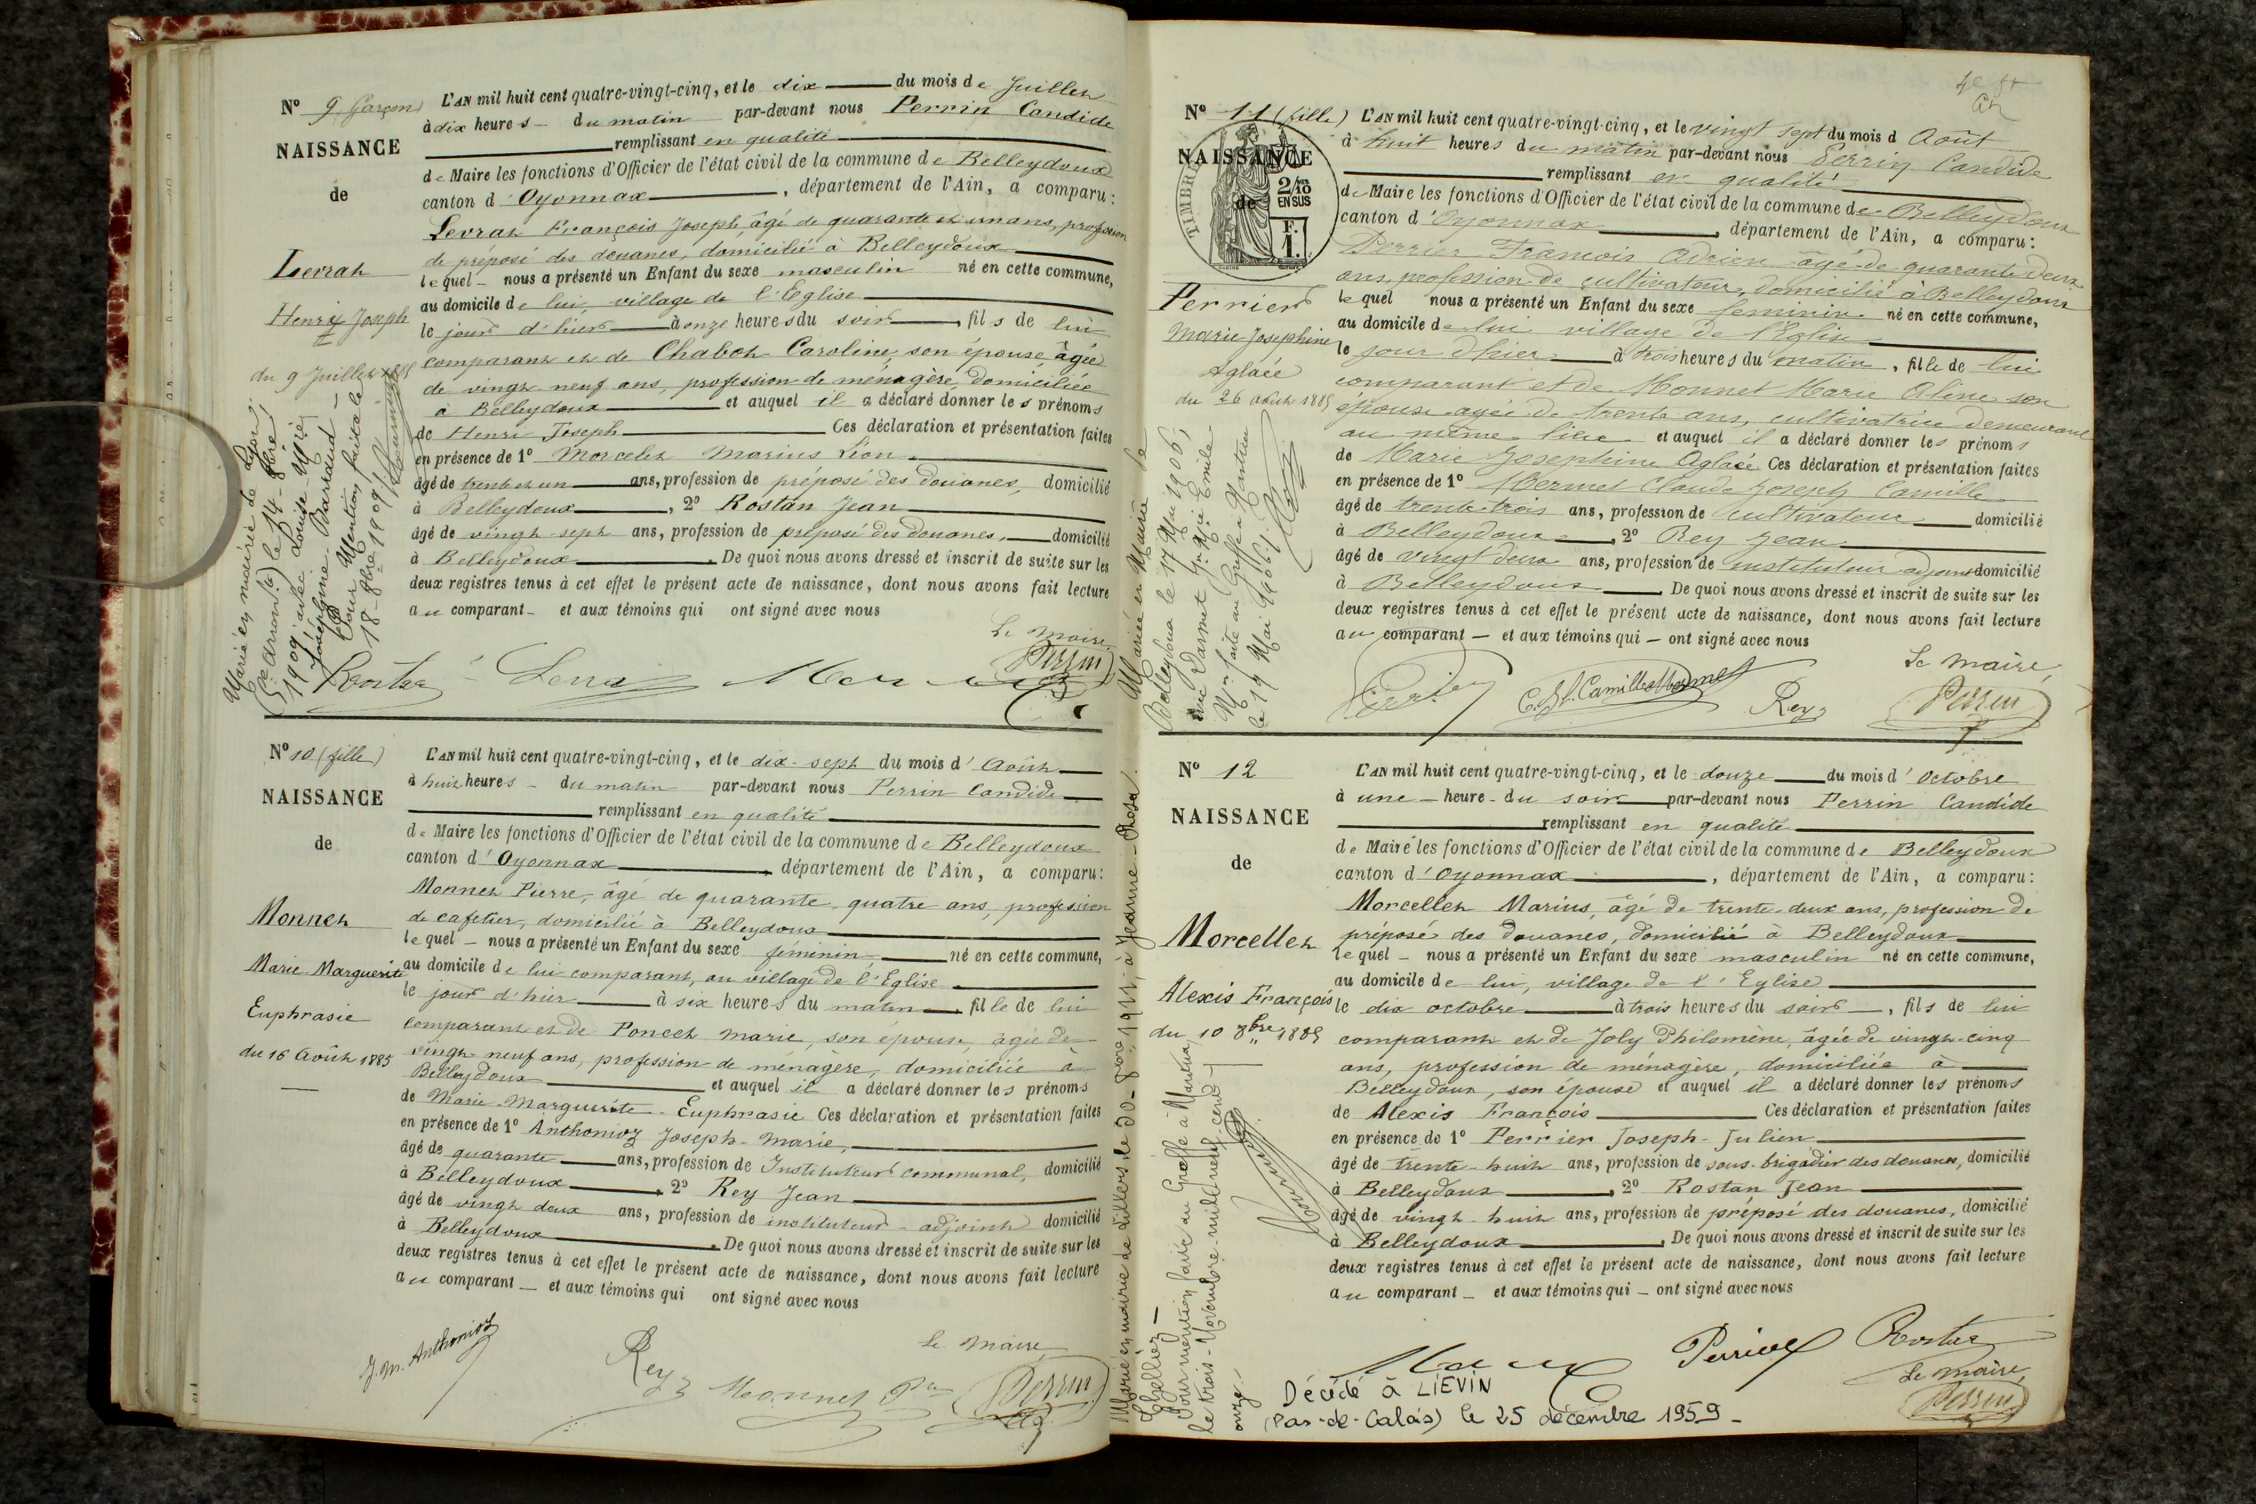 N° 9 Garçon
NAISSANCE
de
Levrat
Henri Joseph
du 9 Juillet 1885
L'AN mil huit cent quatre-vingt-cinq, et le dix du mois de Juillet
à dix heures du matin par-devant nous Perrin Candide
remplissant en qualité
de Maire les fonctions d'Officier de l'état civil de la commune de Belleydoux
canton d'Oyonnax, département de l'Ain, a comparu :
Levrat François Joseph, âgé de quarante et un ans, profession
de préposé des douanes, domicilié à Belleydoux
lequel nous a présenté un Enfant du sexe masculin né en cette commune,
au domicile de lui, village de l'Eglise
le jour d'hier à onze heures du soir, fils de lui
comparant et de Chabot Caroline, son épouse, âgée
de vingt neuf ans, profession de ménagère, domiciliée
à Belleydoux et auquel il a déclaré donner les prénoms
de Henri Joseph Ces déclaration et présentation faites
en présence de 1° Morcelet Marius Léon
âgé de trente et un ans, profession de préposé des douanes, domicilié
à Belleydoux, 2° Rostan Jean
âgé de vingt sept ans, profession de préposé des douanes, domicilié
à Belleydoux. De quoi nous avons dressé et inscrit de suite sur les
deux registres tenus à cet effet le présent acte de naissance, dont nous avons fait lecture
au comparant et aux témoins qui ont signé avec nous
Marié en mairie de Lyon
(5e arrondt) le 14 8bre
1909 avec Louise Mie
Joséphine Barraud
Pour Mention faite le
18 8bre 1909
Le Maire
Perrin
N° 10 (fille)
NAISSANCE
de
Monnet
Marie Marguerite
Euphrasie
du 16 Août 1885
L'AN mil huit cent quatre-vingt-cinq, et le dix-sept du mois d'Août
à huit heures du matin par-devant nous Perrin Candide
remplissant en qualité
de Maire les fonctions d'Officier de l'état civil de la commune de Belleydoux
canton d'Oyonnax département de l'Ain, a comparu :
Monnet Pierre, âgé de quarante quatre ans, profession
de cafetier, domicilié à Belleydoux
lequel nous a présenté un Enfant du sexe féminin né en cette commune,
au domicile de lui comparant, au village de l'Eglise
le jour d'hier à six heures du matin, fille de lui
comparant et de Poncet Marie, son épouse, âgée de
vingt neuf ans, profession de ménagère, domiciliée à
Belleydoux et auquel il a déclaré donner les prénoms
de Marie Marguerite Euphrasie Ces déclaration et présentation faites
en présence de 1° Anthonioz Joseph-Marie,
âgé de quarante ans, profession de Instituteur communal, domicilié
à Belleydoux, 2° Rey Jean
âgé de vingt deux ans, profession de instituteur-adjoint domicilié
à Belleydoux. De quoi nous avons dressé et inscrit de suite sur les
deux registres tenus à cet effet le présent acte de naissance, dont nous avons fait lecture
au comparant et aux témoins qui ont signé avec nous
J. M. Anthonioz
Rey
Monnet Pre
Le maire
Perrin
N° 11 (fille)
TIMBRE
2/10
EN SUS
F.
1.
NAISSANCE
de
Perrier
Marie Josephine
Aglaée
du 26 août 1885
L'AN mil huit cent quatre-vingt-cinq, et le vingt sept du mois d Août
à huit heures du matin par-devant nous Perrin Candide
remplissant en qualité
de Maire les fonctions d'Officier de l'état civil de la commune de Belleydoux
canton d'Oyonnax, département de l'Ain, a comparu :
Perrier François Adrien âgé de quarante deux
ans, profession de cultivateur, domicilié à Belleydoux
lequel nous a présenté un Enfant du sexe feminin né en cette commune,
au domicile de lui village de l'Eglise
le jour d'hier à trois heures du matin, fille de lui
comparant et de Monnet Marie Aline son
épouse agée de trente ans, cultivatrice demeurant
au même lieu et auquel il a déclaré donner les prénoms
de Marie Josephine Aglaée Ces déclaration et présentation faites
en présence de 1° Mermet Claude Joseph Camille
âgé de trente trois ans, profession de cultivateur domicilié
à Belleydoux, 2° Rey Jean
âgé de vingt deux ans, profession de instituteur adjoint domicilié
à Belleydoux. De quoi nous avons dressé et inscrit de suite sur les
deux registres tenus à cet effet le présent acte de naissance, dont nous avons fait lecture
au comparant et aux témoins qui ont signé avec nous
Mariée en Mairie de
Belleydoux le 17 Mai 1906,
avec
Mon faite au Greffe à Nantua
le 19 Mai 1906
Perrier
C. J. Camille Mermet
Rey
Le maire
Perrin
N° 12
NAISSANCE
de
Morcellet
Alexis François
du 10 8bre 1885
L'AN mil huit cent quatre-vingt-cinq, et le douze du mois d'octobre
à une heure du soir par-devant nous Perrin Candide
remplissant en qualité
de Maire les fonctions d'Officier de l'état civil de la commune de Belleydoux
canton d'Oyonnax, département de l'Ain, a comparu :
Morcellet Marius, âgé de trente-deux ans, profession de
préposé des douanes, domicilié à Belleydoux
lequel nous a présenté un Enfant du sexe masculin né en cette commune,
au domicile de lui, village de l'Eglise
le dix octobre à trois heures du soir, fils de lui
comparant et de Joly Philomène, âgée de vingt-cinq
ans, profession de ménagère, domiciliée à
Belleydoux, son épouse et auquel il a déclaré donner les prénoms
de Alexis François Ces déclaration et présentation faites
en présence de 1° Perrier Joseph-Julien
âgé de trente-huit ans, profession de sous-brigadier des douanes, domicilié
à Belleydoux, 2° Rostan Jean
âgé de vingt-huit ans, profession de préposé des douanes, domicilié
à Belleydoux. De quoi nous avons dressé et inscrit de suite sur les
deux registres tenus à cet effet le présent acte de naissance, dont nous avons fait lecture
au comparant et aux témoins qui ont signé avec nous
Marié en mairie de Lillers le 30 1911, à Jeanne
Pour mention faite au Greffe à Nantua
le trois Novembre mil neuf cent
onze
Perrier
Rostan
Le maire,
Perrin
Décédé à LIEVIN
(Pas-de-Calais) le 25 décembre 1959